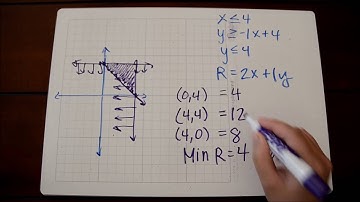 x ≤ 4
y ≥ -1x + 4
y ≤ 4
R = 2x + 1y
(0,4) = 4
(4,4) = 12
(4,0) = 8
Min R = 4